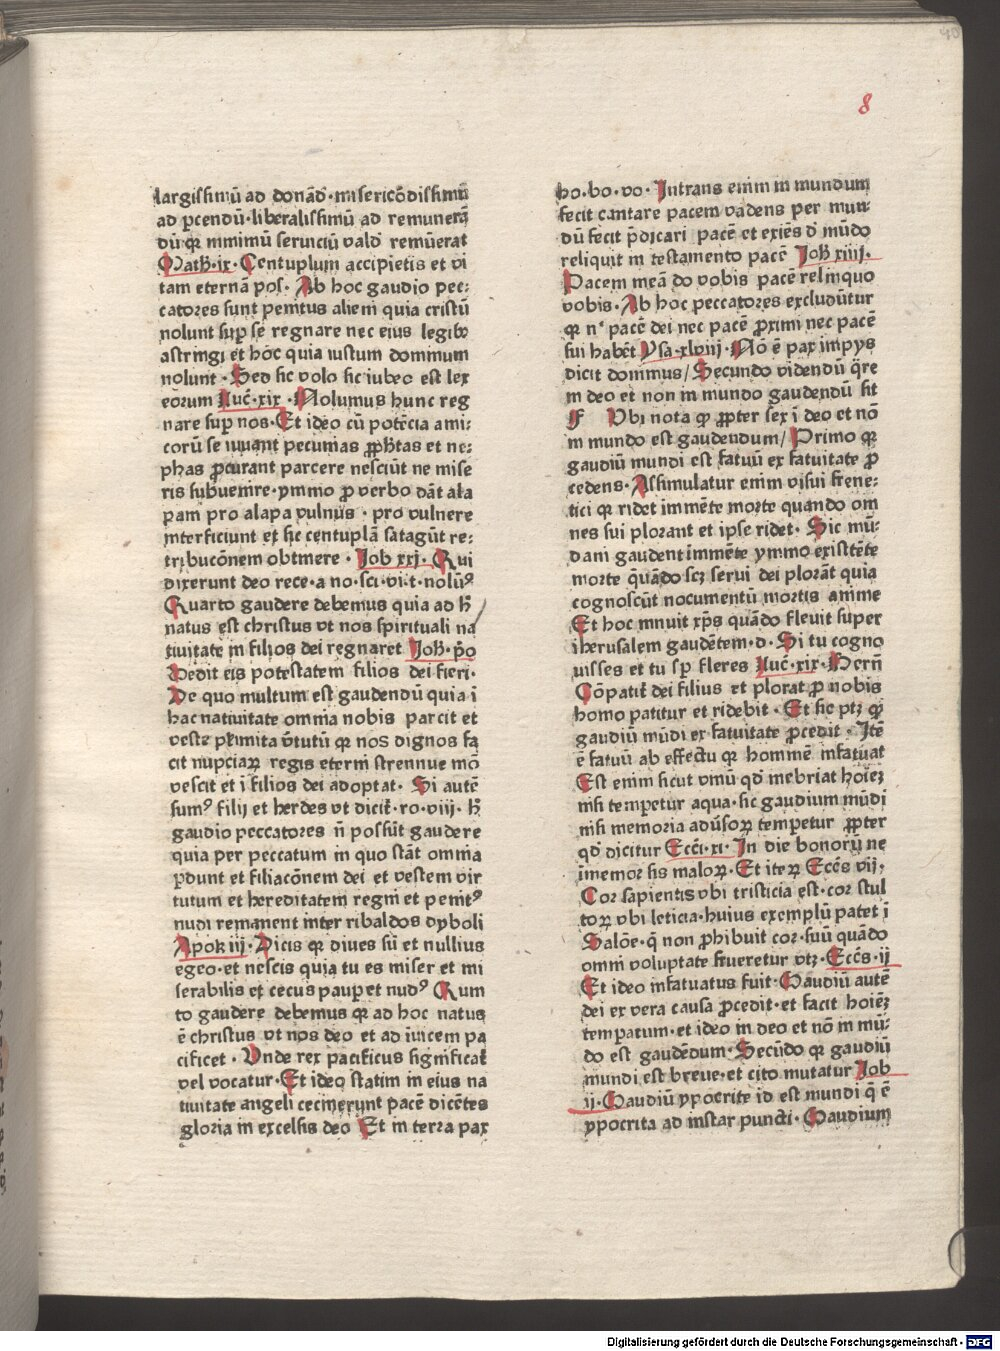 8
largissimū ad donād᷎·misericōdissimū
ad ꝑcendū·liberalissimū ad remunerā
dū qꝛ minimū seruiciū vald᷎ remūerat
Math·ix· Centuplum accipietis et vi
tam eternā pos· Ab hoc gaudio pec⸗
catores sunt penitus alieni quia cristū
nolunt suꝑ se regnare nec eius legibꝰ
astringi et hōc quia iustum dominum
nolunt · Sed sic volo sic iubeo est lex
eorum Luc̄·xix · Nolumus hunc reg
nare suꝑ nos· Et ideo cū potētia ami⸗
corū se iuuant pecunias ꝓph̄tas et ne⸗
phas ꝓcurant parcere nesciūt ne mise
ris subuenire·ymmo ꝓ verbo dāt ala
pam pro alapa vulnus · pro vulnere
interficiunt et sic centuplā satagūt re⸗
tribucōnem obtinere · Job xxj· Qui
dixerunt deo rece·a no·sci·vi·t·nolūꝰ
Quarto gaudere debemus quia ad h̄
natus est christus vt nos spirituali na
tiuitate in filios dei regnaret Joh̄·p̄o
Dedit eis potestatem filios dei fieri·
De quo multum est gaudendū quia ī
hac natiuitate omnia nobis parcit et
veste p̄timita v̄tutū qꝛ nos dignos fa
cit nupciaꝝ regis eterni strennue mō
vescit et ī filios dei adoptat· Si autē
sumꝰ filij et herdes vt dicit᷑·ro·viij· h̄
gaudio peccatores n̄ possūt gaudere
quia per peccatum in quo stāt omnia
ꝑdunt et filiacōnem dei et vestem vir
tutum et hereditatem regni et penitꝰ
nudi remanent inter ribaldos dyboli
Apok iij · Dicis qꝛ diues sū et nullius
egeo·et nescis quia tu es miser et mi
serabilis et cecus pauꝑ et nudꝰ Quin
to gaudere debemus qꝛ ad hoc natus
ē christus vt nos deo et ad īuicem pa
cificet · Vnde rex pacificus significat᷑
vel vocatur· Et ideo statim in eius na
tiuitate angeli cecinerunt pacē dicētes
gloria in excelsis deo Et in terra pax
ho·bo·vo· Intrans enim in mundum
fecit cantare pacem vadens per mun⸗
dū fecit p̄dicari pacē et exiēs d᷎ mūdo
reliquit in testamento pacē Joh̄ xiiij·
Pacem meā do vobis pacē relinquo
vobis· Ab hoc peccatores excludūtur
qꝛ nꝰ pacē dei nec pacē ꝓximi nec pacē
sui habēt Ysa·xlviij· Nō ē pax impys
dicit dominus/ Secundo videndū q̄re
in deo et non in mundo gaudendū sit
F Vbi nota ꝙ ꝓpter sex ī deo et nō
in mundo est gaudendum/ Primo qꝛ
gaudiū mundi est fatuū ex fatuitate ꝓ
cedens· Assimulatur enim visui frene⸗
tici qꝛ ridet imminēte morte quando om
nes sui plorant et ipse ridet· Sic mū⸗
dani gaudent imminēte ymmo existēte
morte quādo scꝫ serui dei plorāt quia
cognoscūt nocumentū mortis anime
Et hoc innuit xp̄s quādo fleuit super
iherusalem gaudētem·d· Si tu cogno
uisses et tu sꝑ fleres Luc̄·xix· Bern̄
Cōpatit᷑ dei filius et plorat ꝓ nobis
homo patitur et ridebit · Et sic ptꝫ ꝙ
gaudiū mūdi ex fatuitate ꝓcedit · Itē
ē fatuū ab effectu qꝛ hominē infatuat
Est enim sicut vinū qd᷎ inebriat hoīeꝫ
nisi tempetur aqua·sic gaudium mūdi
nisi memoria adūsoꝝ tempetur ꝓpter
qd᷎ dicitur Ecc̄i·xi· In die bonorū ne
īmemor sis maloꝝ· Et iteꝝ Ecc̄s vij·
Cor sapientis vbi tristicia est·cor stul
toꝝ vbi leticia·huius exemplū patet ī
Salōe·q̄ non ꝓhibuit cor·suū quādo
omni voluptate frueretur vtꝫ· Ecc̄s·ij
Et ideo infatuatus fuit· Gaudiū autē
dei ex vera causa ꝓcedit·et facit hoīeꝫ
tempatum·et ideo in deo et nō in mū⸗
do est gaudēdum· Secūdo qꝛ gaudiū
mundi est breue·et cito mutatur Job
ij· Gaudiū ypocrite id est mundi q̄ ē
ypocrita ad instar puncti· Gaudium
Digitalisierung gefördert durch die Deutsche Forschungsgemeinschaft - DFG